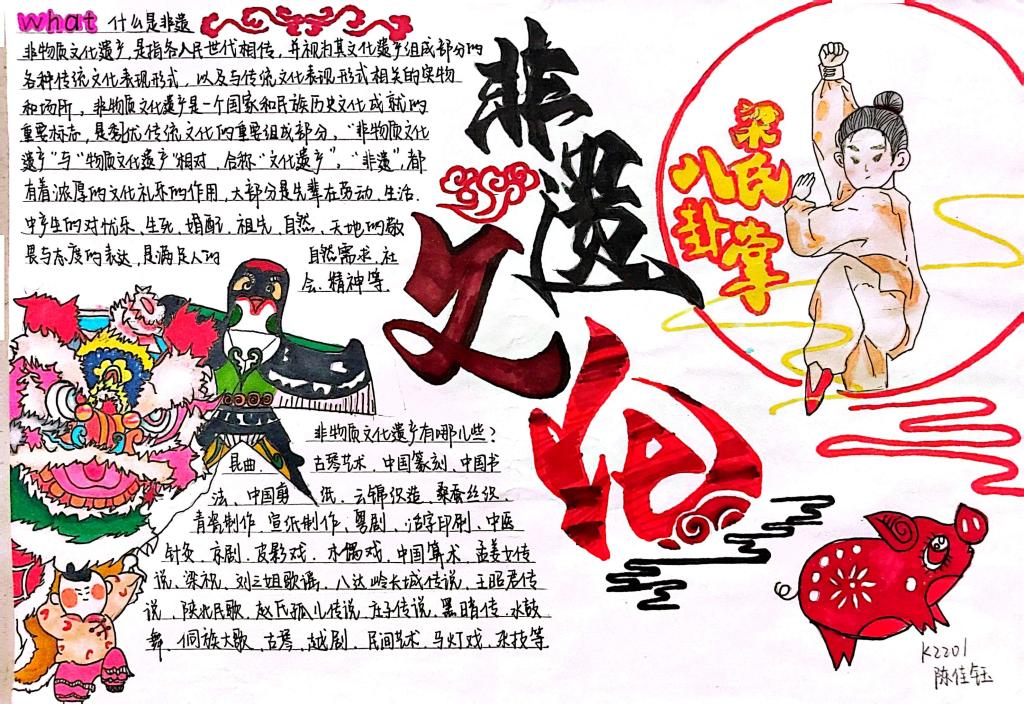 what 什么是非遗
非物质文化遗产,是指各人民世代相传,并视为其文化遗产组成部分的
各种传统文化表现形式,以及与传统文化表现形式相关的实物
和场所,非物质文化遗产是一个国家和民族历史文化成就的
重要标志,是优传统文化的重要组成部分,“非物质文化
遗产”与“物质文化遗产”相对,合称“文化遗产”。“非遗”,都
有着浓厚的文化礼乐的作用,大部分是先辈在劳动、生活、
中产生的对忧乐、生死、婚配、祖先、自然、天地的敬
畏与态度的表达,是满足人的 自然需求、社
会、精神等
非遗
文化
梁氏
八卦掌
非物质文化遗产有哪几些?
昆曲、古琴艺术、中国篆刻、中国书
法、中国剪纸、云锦织造、桑蚕丝织、
青瓷制作、宣纸制作、粤剧、活字印刷、中医
针灸、京剧、皮影戏、木偶戏、中国算术、孟姜女传
说、梁祝、刘三姐歌谣、八达岭长城传说、王昭君传
说、陕北民歌、赵氏孤儿传说、庄子传说、黑暗传、水鼓
舞、侗族大歌、古琴、越剧、民间艺术、马灯戏、杂技等
K2201
陈佳钰